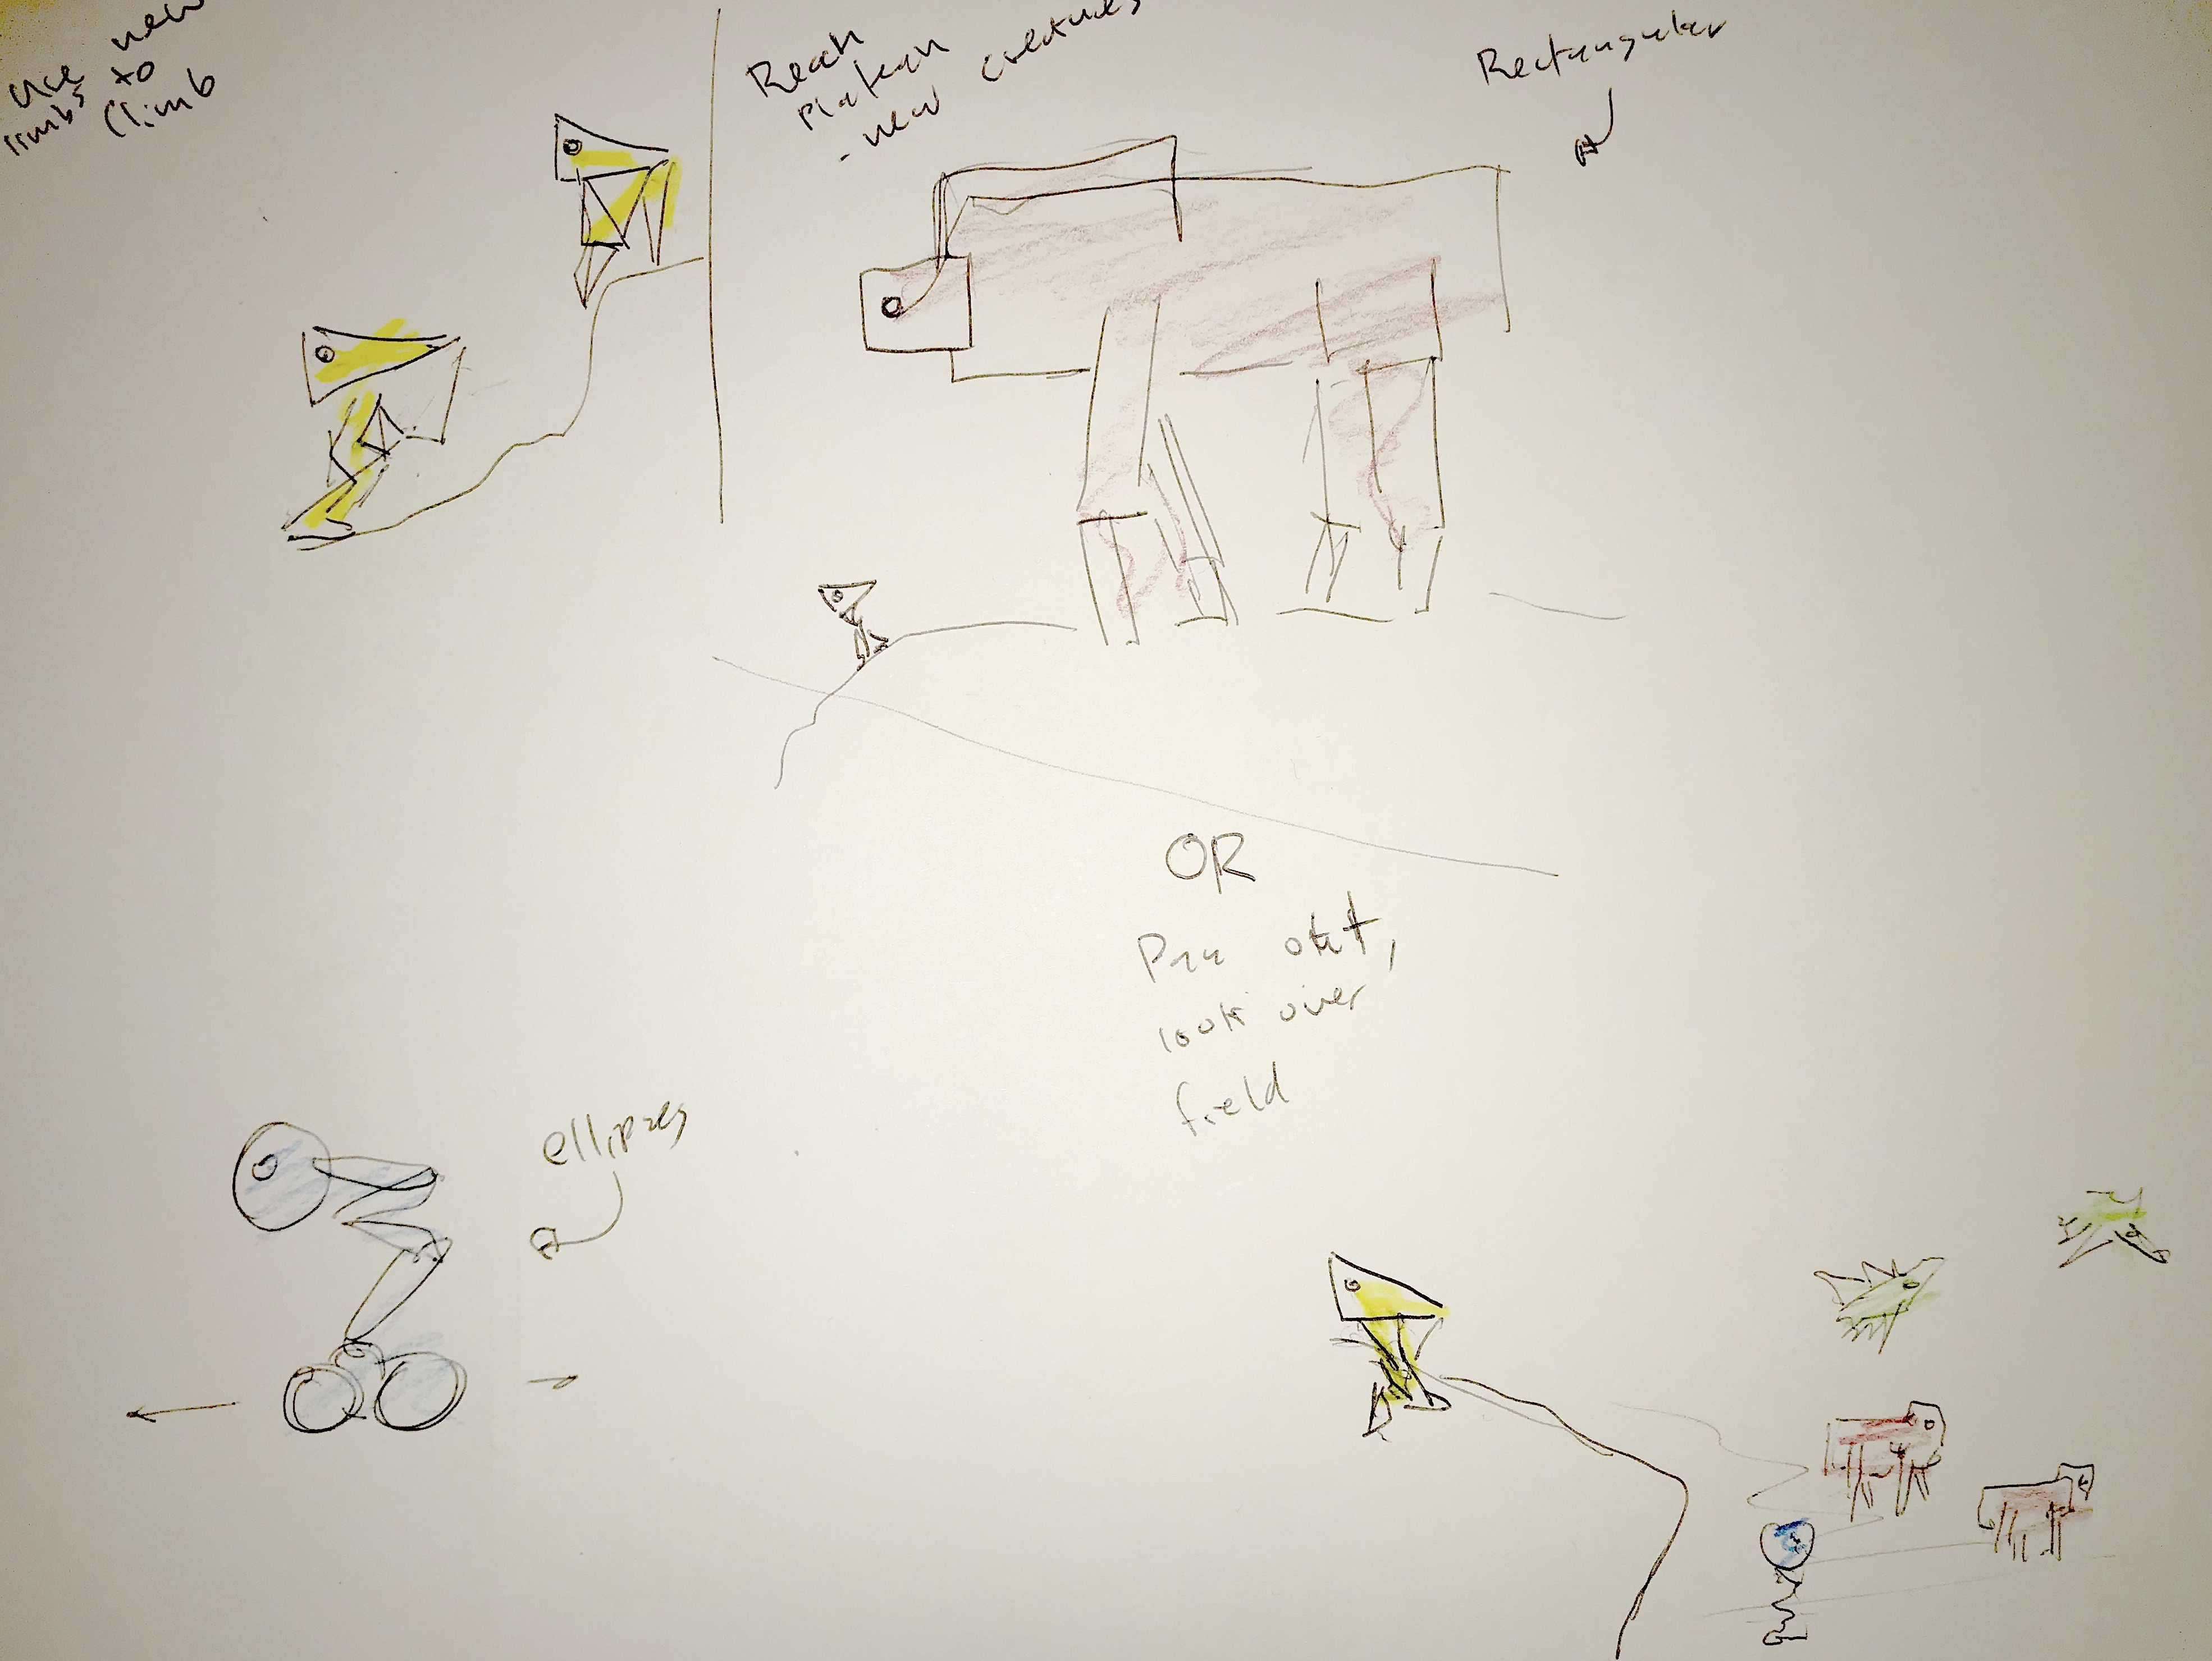 Use new
limbs to
climb
Reach
Plateau
- new creatures
Rectangular
OR
Pan out,
look over
field
ellipses